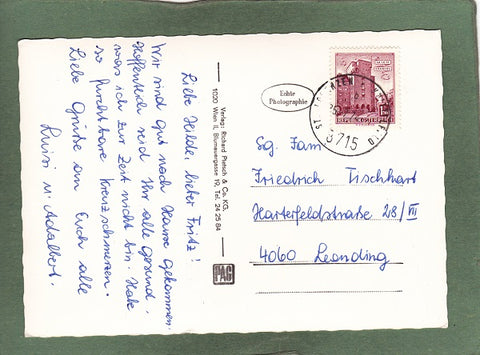 Liebe Hilde, lieber Fritz!
Wir sind gut nach Hause gekommen.
Hoffentlich seid Ihr alle gesund,
was ich zur Zeit nicht bin. Habe
so furchtbare Kreuzschmerzen.
Liebe Grüße an Euch alle
Luisi u. Adalbert.
Verlag: Richard Pietsch & Co. KG.
1020 Wien II, Blumauergasse 19, Tel. 24 25 84
PAG
Echte
Photographie
3715
REPUBLIK ÖSTERREICH
Sg. Fam
Friedrich Tischhart
Harterfeldstraße 28/III
4060 Leonding